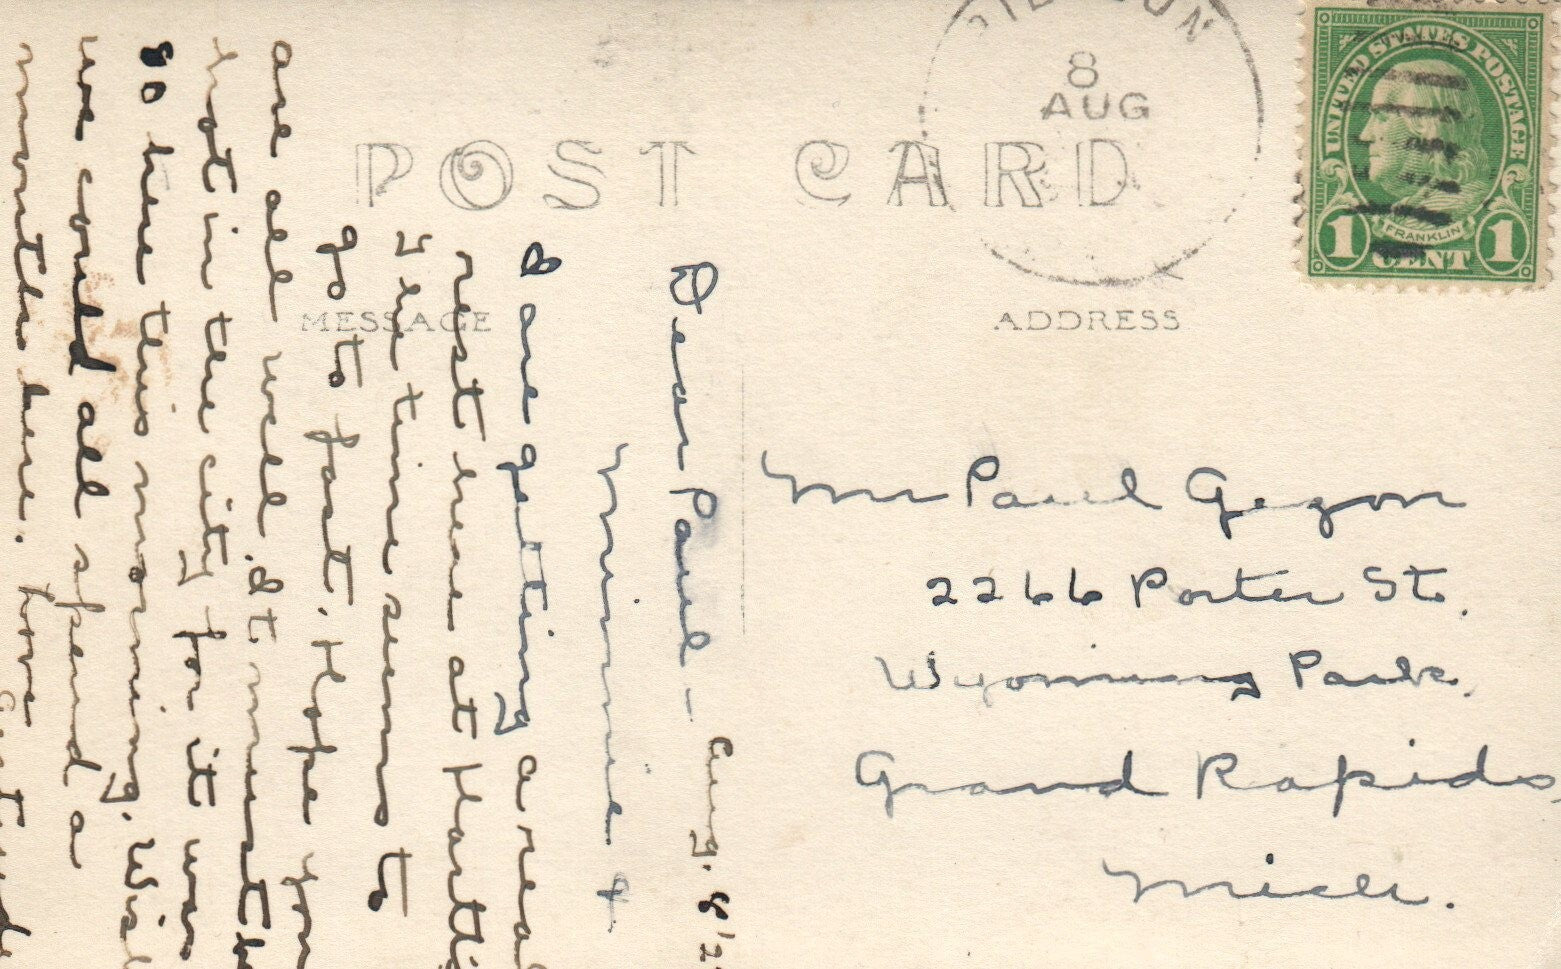 POST CARD
8
AUG
UNITED STATES POSTAGE
FRANKLIN
1 CENT 1
MESSAGE
ADDRESS
Mr Paul Gezon
2266 Porter St.
Wyoming Park,
Grand Rapids,
Mich.
Aug. 8 '2
Dear Paul –
Minnie &
I are getting a real
rest here at
the time seems to
go to fast. Hope you
are all well. It must be
hot in the city for it was
80 here this morning. Wish
we could all spend a
month here. Love